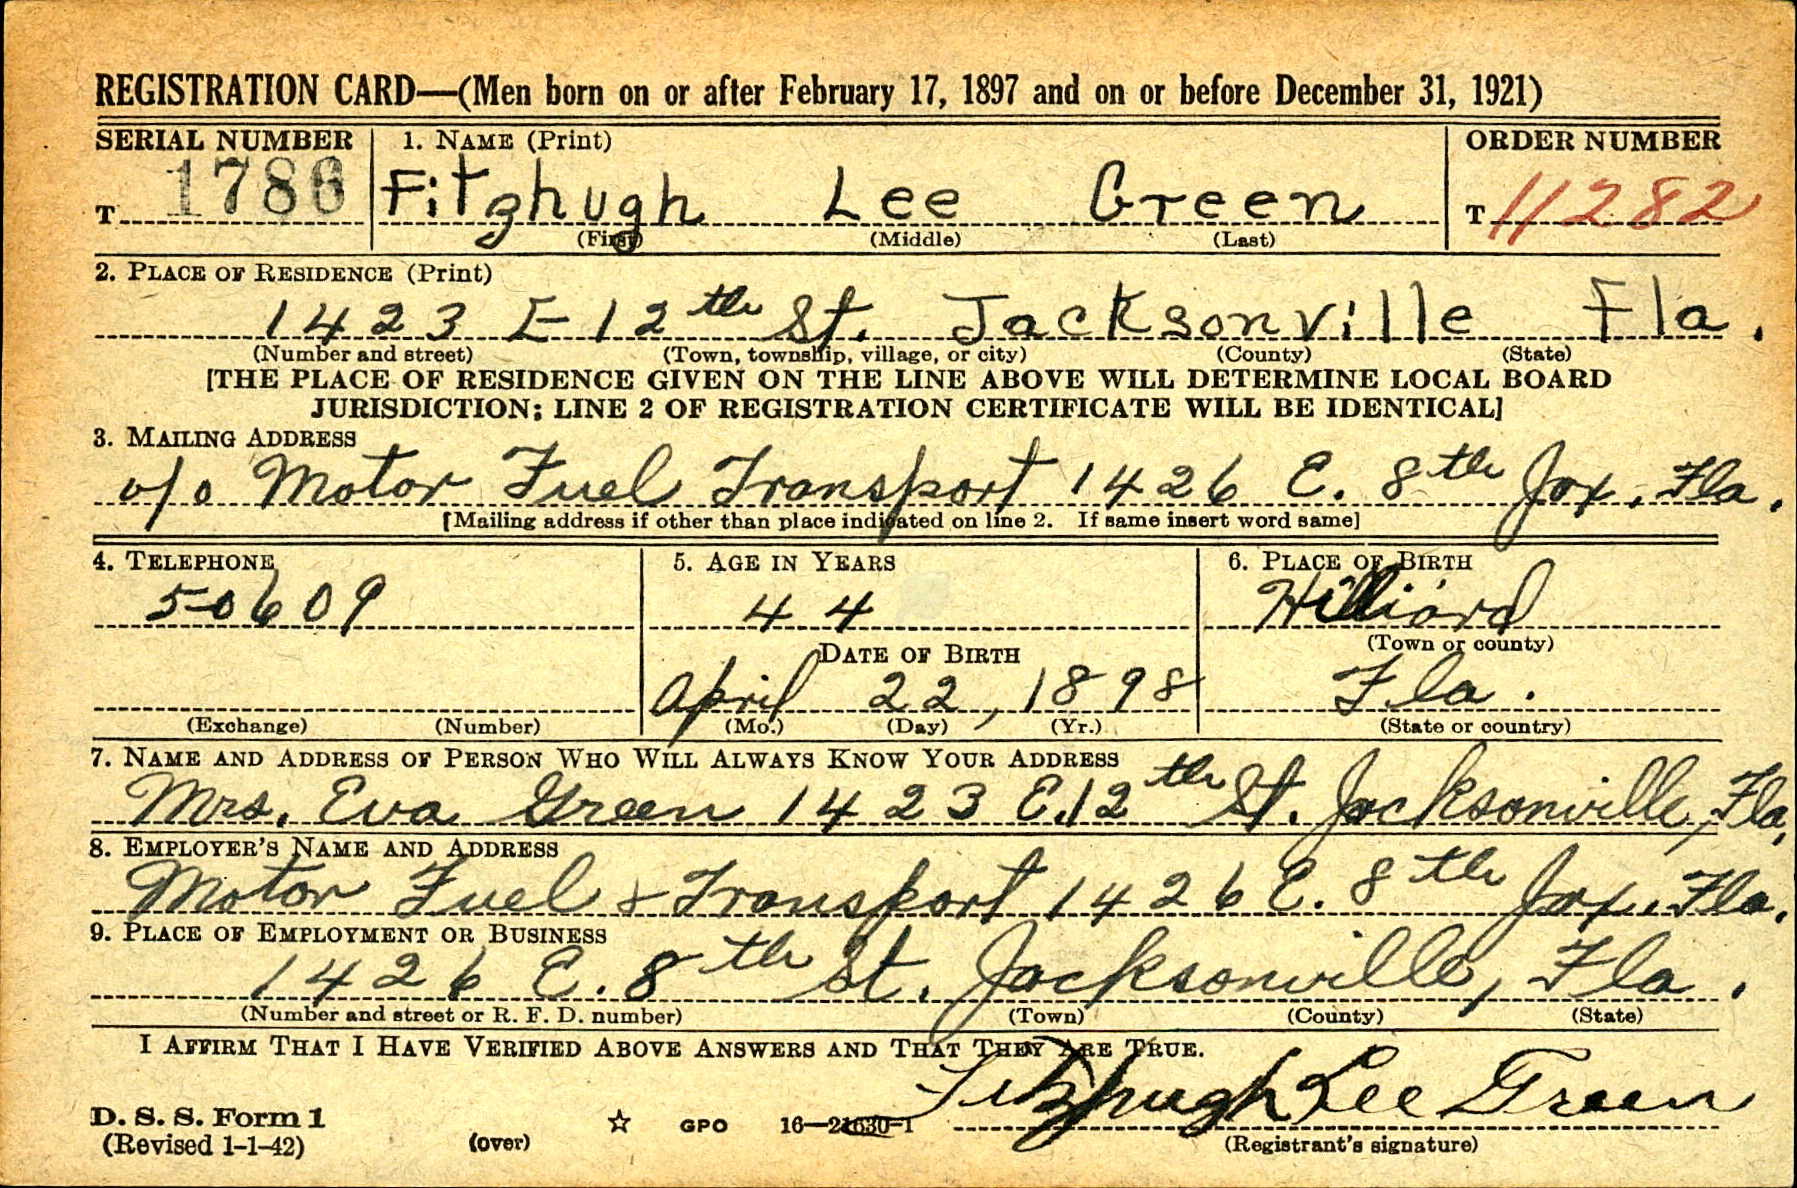 REGISTRATION CARD—(Men born on or after February 17, 1897 and on or before December 31, 1921)
SERIAL NUMBER 1. NAME (Print) ORDER NUMBER
T 1786 Fitzhugh Lee Green T 11282
(First) (Middle) (Last)
2. PLACE OF RESIDENCE (Print)
1423 E 12th St. Jacksonville Fla.
(Number and street) (Town, township, village, or city) (County) (State)
[THE PLACE OF RESIDENCE GIVEN ON THE LINE ABOVE WILL DETERMINE LOCAL BOARD
JURISDICTION; LINE 2 OF REGISTRATION CERTIFICATE WILL BE IDENTICAL]
3. MAILING ADDRESS
c/o Motor Fuel Transport 1426 E. 8th Jax. Fla.
[Mailing address if other than place indicated on line 2. If same insert word same]
4. TELEPHONE 5. AGE IN YEARS 6. PLACE OF BIRTH
50609 44 Hilliard
(Town or county)
DATE OF BIRTH
April 22, 1898 Fla.
(Exchange) (Number) (Mo.) (Day) (Yr.) (State or country)
7. NAME AND ADDRESS OF PERSON WHO WILL ALWAYS KNOW YOUR ADDRESS
Mrs. Eva Green 1423 E. 12th St. Jacksonville, Fla.
8. EMPLOYER'S NAME AND ADDRESS
Motor Fuel & Transport 1426 E. 8th Jax. Fla.
9. PLACE OF EMPLOYMENT OR BUSINESS
1426 E. 8th St. Jacksonville, Fla.
(Number and street or R. F. D. number) (Town) (County) (State)
I AFFIRM THAT I HAVE VERIFIED ABOVE ANSWERS AND THAT THEY ARE TRUE.
Fitzhugh Lee Green
D. S. S. Form 1
(Revised 1-1-42) (over) ☆ GPO 16—21630-1 (Registrant's signature)